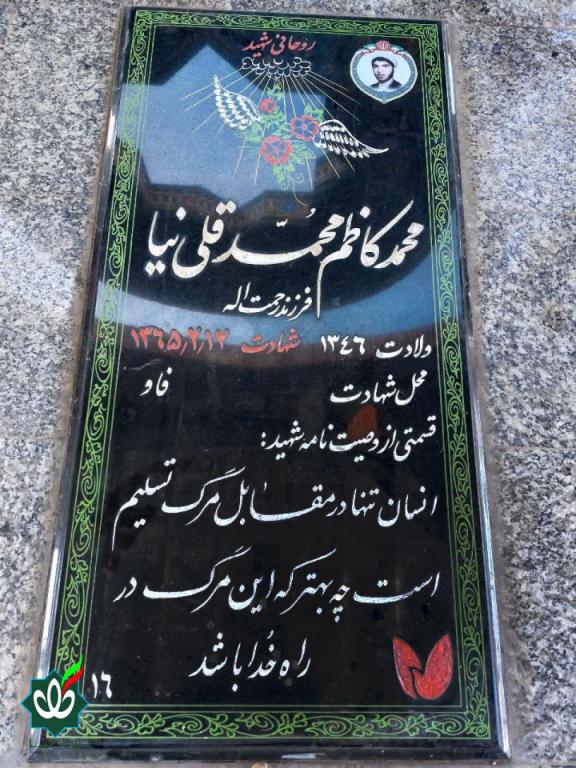 روحانی شهید
محمد کاظم محمّد قلی نیا
فرزند رحمت اله
ولادت ۱۳۴۶ شهادت ۱۳۶۵٫۲٫۱۲
محل شهادت فاو
قسمتی از وصیت نامه شهید:
انسان تنها در مقابل مرگ تسلیم
است چه بهتر که این مرگ در
راه خُدا باشد
۱۶